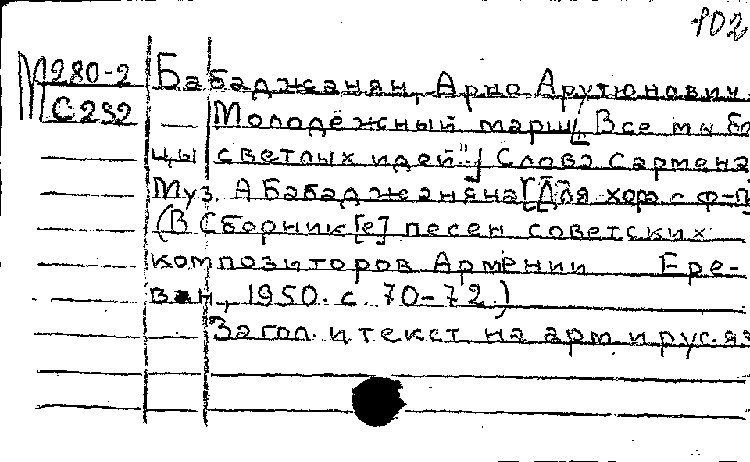 102
М 280-2 Бабаджанян, Арно Арутюнович.
С 232 Молодёжный марш [„Все мы бо
цы светлых идей"] Слова Сармена
Муз. А Бабаджаняна [Для хора с ф-п
(В Сборник[е] песен советских
композиторов Армении Ере-
ван, 1950. с. 70-72.)
Загол. и текст на арм. и рус. яз